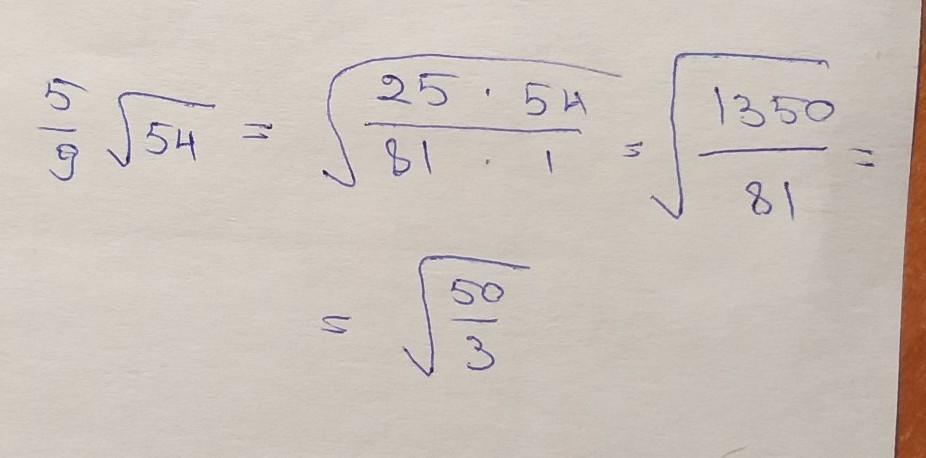 5/9 √54 = √(25 · 54 / 81 · 1) = √(1350/81) =
= √(50/3)